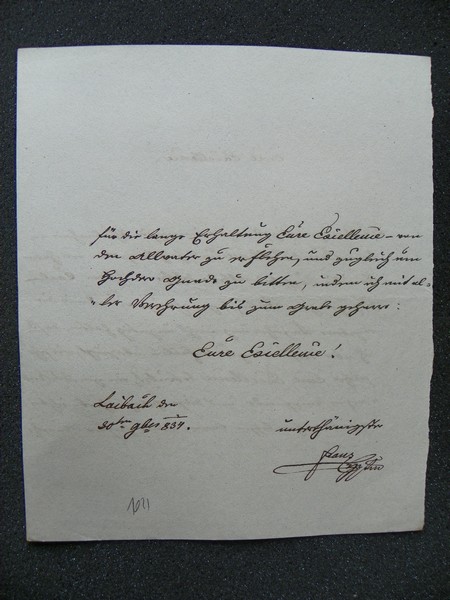 für die lange Erhaltung Eure Excellence – von
den Allvater zu erflehen, und zugleich um
Hochdero Gnade zu bitten, indem ich mit al-
-ler Verehrung bis zum Grabe geharre:
Eure Excellence!
Laibach den
30ten 9ber 834.
unterthänigster
Franz